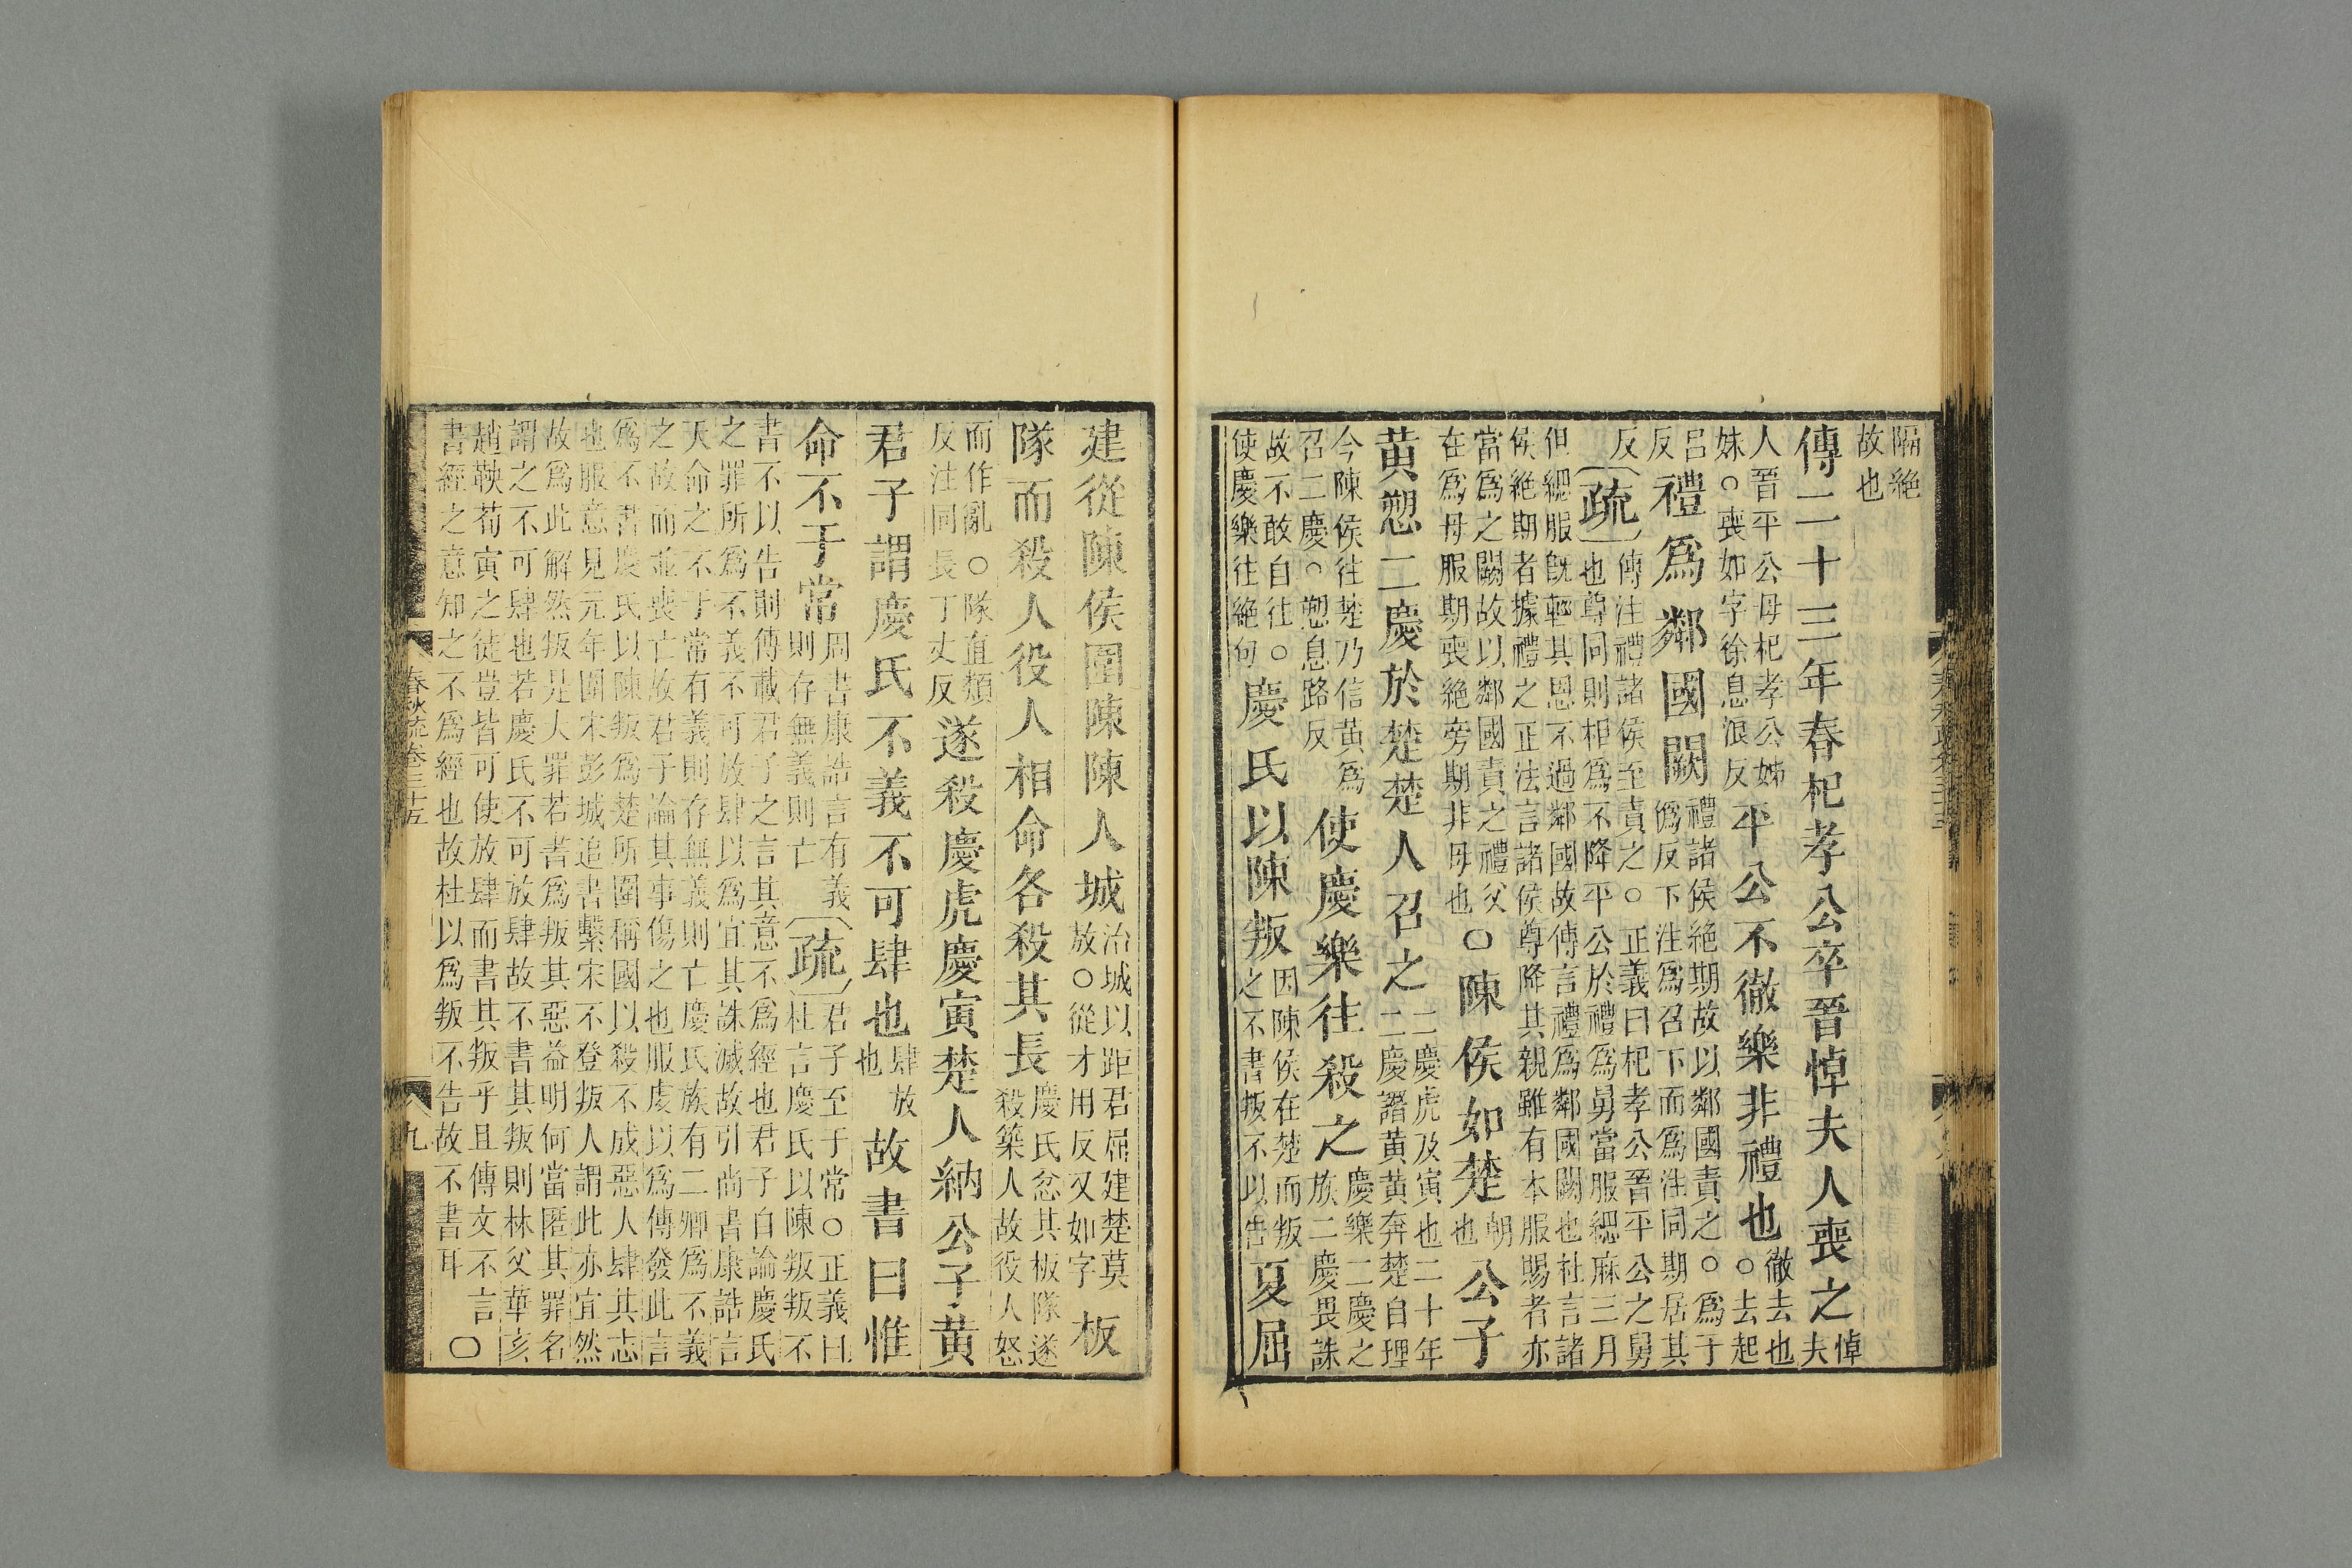 隔絶
故也
傳二十三年春杞孝公卒晉悼夫人喪之悼
夫
人晉平公母杞孝公姊
妹○喪如字徐息浪反平公不徹樂非禮也徹去也
○去起
呂
反禮爲鄰國闕禮諸侯絶期故以鄰國責之○爲于
僞反下注爲召下而爲注同期居其
反
疏傳注禮諸侯至責之○正義曰杞孝公晉平公之舅
也尊同則相爲不降平公於禮爲舅當服緦麻三月
但緦服旣輕其恩不過鄰國故傳言禮爲鄰國闕也社言諸
侯絶期者據禮之正法言諸侯尊降其親雖有本服賜者亦
當爲之闕故以鄰國責之禮父
在爲母服期喪絶旁期非母也○陳侯如楚朝
也公子
黄愬二慶於楚楚人召之二慶虎及寅也二十年
二慶譖黄黄奔楚自理
今陳侯往楚乃信黄爲
召二慶○愬息路反使慶樂往殺之慶樂二慶之
族二慶畏誅
故不敢自往○
使慶樂往絶句慶氏以陳叛因陳侯在楚而叛
之不書叛不以告夏屈
建從陳侯圍陳陳人城治城以距君屈建楚莫
敖○從才用反又如字板
隊而殺人役人相命各殺其長慶氏忿其板隊遂
殺築人故役人怒
而作亂○隊直類
反注同長丁丈反遂殺慶虎慶寅楚人納公子黄
君子謂慶氏不義不可肆也肆放
也故書曰惟
命不于常周書康誥言有義
則存無義則亡疏君子至于常○正義曰
杜言慶氏以陳叛叛不
書不以告則傳載君子之言其意不爲經也君子自論慶氏
之罪所爲不義不可放肆以爲宜其誅滅故引尚書康誥言
天命之不于常有義則存無義則亡慶氏族有二卿爲不義
之故而並喪亡故君子論其事傷之也服虔以爲傳發此言
爲不書慶氏以陳叛爲楚所圍稱國以殺不成惡人肆其志
也服意見元年圍宋彭城追書繫宋不登叛人謂此亦宜然
故爲此解然叛是大罪若書爲叛其惡益明何當匿其罪名
謂之不可肆也若慶氏不可放肆故不書其叛則林父華亥
趙鞅荀寅之徒豈皆可使放肆而書其叛乎且傳文不言
書經之意知之不爲經也故杜以爲叛不告故不書耳○
春秋疏卷三十五
九